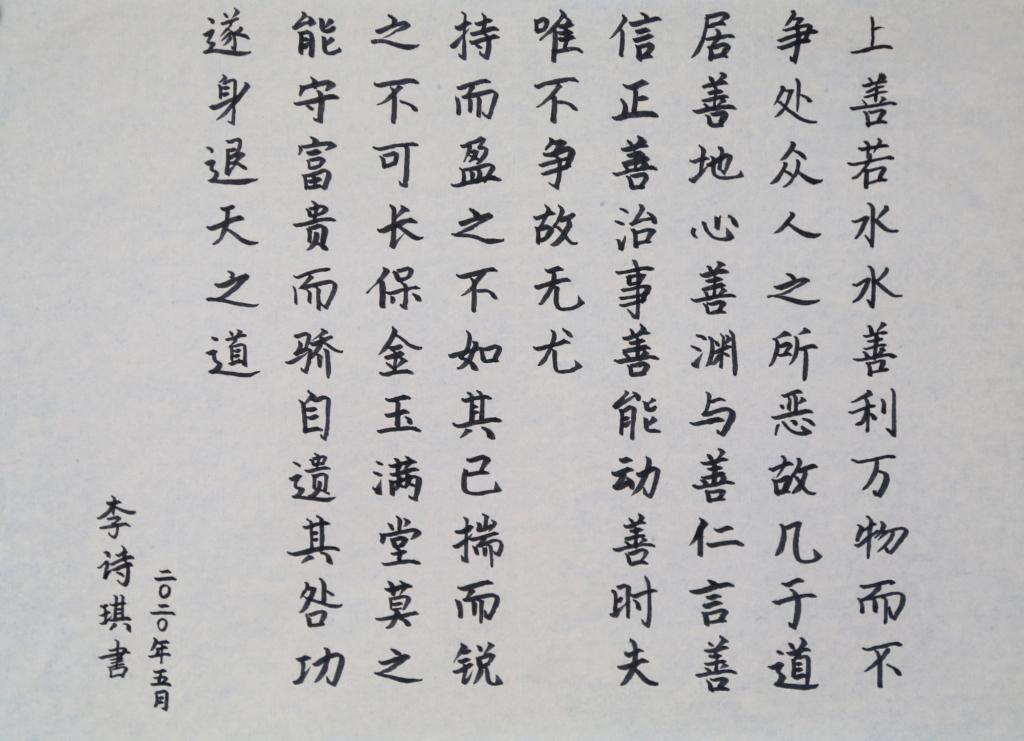 上善若水水善利万物而不
争处众人之所恶故几于道
居善地心善渊与善仁言善
信正善治事善能动善时夫
唯不争故无尤
持而盈之不如其已揣而锐
之不可长保金玉满堂莫之
能守富贵而骄自遗其咎功
遂身退天之道
二〇二〇年五月
李诗琪書